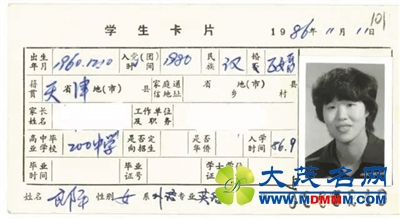 101
学生卡片 1986年11月11日
出生年月 1960.12.10 入党(团)时间 1980 民族 汉 婚否 已婚
籍贯 天津 省 地(市) 县 家庭通信地址 省 地(市) 县 乡 村
家长姓名 工作单位及职务
高中毕业学校 200中学 是否定向招生 是否华侨 入学时间 86.9
毕业时间 毕业证号 学士学位证号
姓名 郎平 性别 女 系 外语 专业 英语
大茂名网
WWW.MDMMM.COM